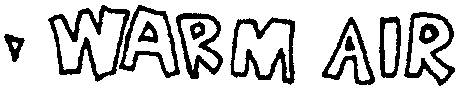 WARM AIR